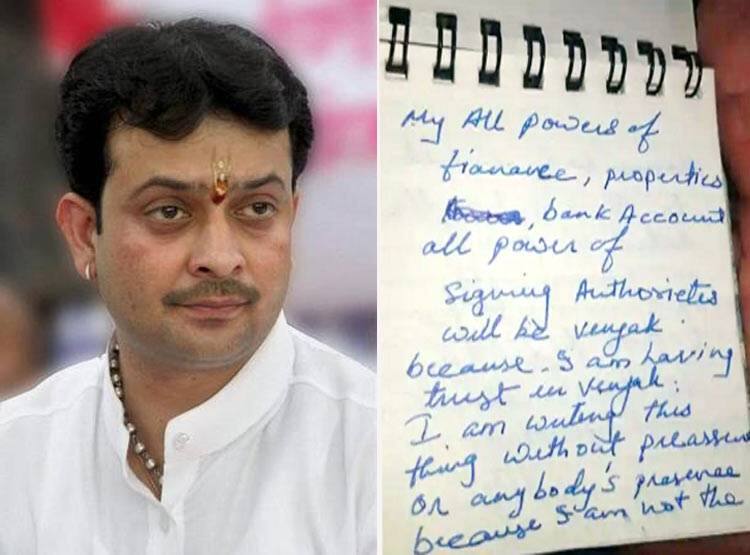 My All powers of
fianance, properties
, bank Account
all power of
signing Authorieties
will be venyak
because. I am having
trust in venyak.
I am writing this
thing without preassure
or anybody's presence
because I am not the